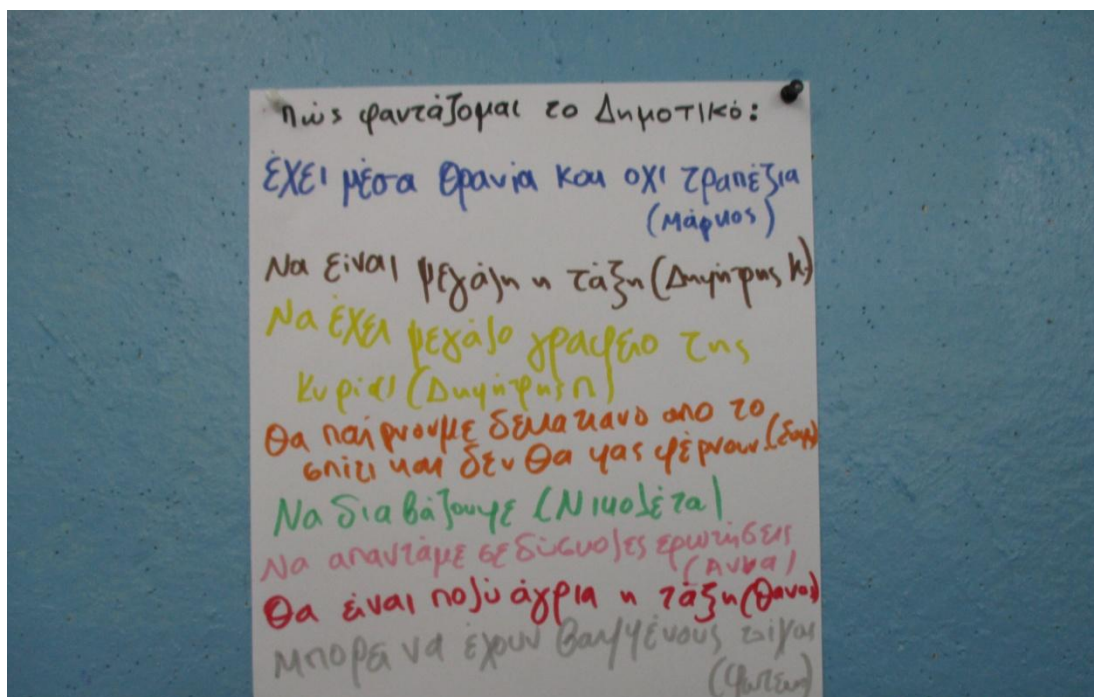 Πώς φαντάζομαι το Δημοτικό:
έχει μέσα θρανία και οχι τραπέζια
(Μάρκος)
Να είναι μεγάλη η τάξη (Δημήτρης Κ)
Να έχει μεγάλο γραφείο της
Κυρίας (Δημήτρης Π)
Θα παίρνουμε δεκατιανο απο το
σπίτι και δεν θα μας φέρνουν
Να διαβάζουμε (Νικολέτα)
Να απαντάμε σε δύσκολες ερωτήσεις
(Αννα)
Θα είναι πολύ άγρια η τάξη (Θανος)
Μπορεί να έχουν βαμμένους τοίχους